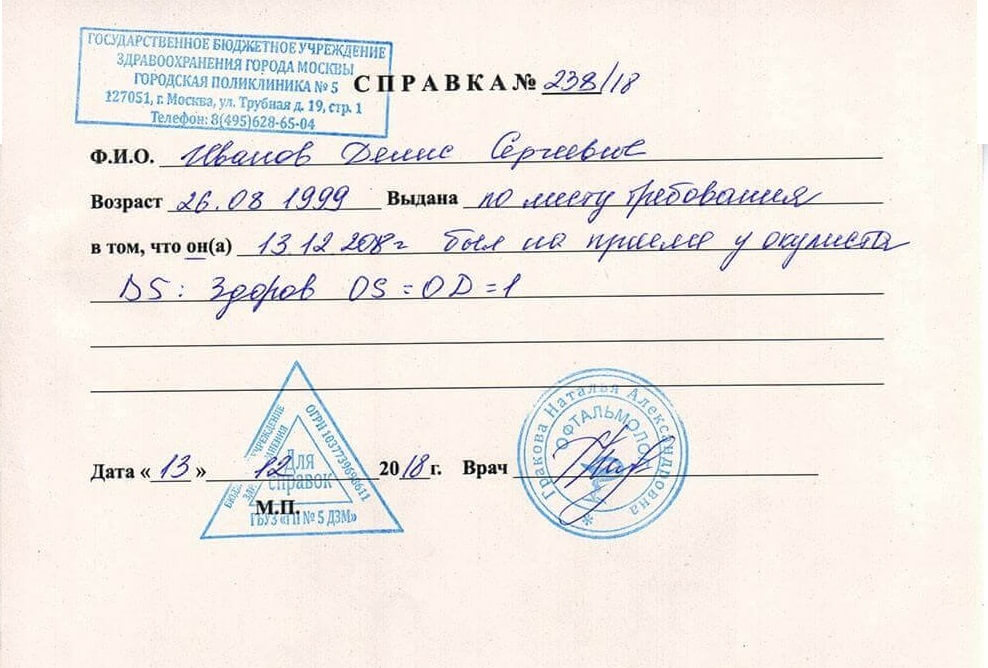 ГОСУДАРСТВЕННОЕ БЮДЖЕТНОЕ УЧРЕЖДЕНИЕ
ЗДРАВООХРАНЕНИЯ ГОРОДА МОСКВЫ
ГОРОДСКАЯ ПОЛИКЛИНИКА № 5
127051, г. Москва, ул. Трубная д. 19, стр. 1
Телефон: 8(495)628-65-04
СПРАВКА № 238/18
Ф.И.О. Иванов Денис Сергеевич
Возраст 26.08 1999 Выдана по месту требования
в том, что он(а) 13 12 2018 г был на приеме у окулиста
DS: Здоров OS = OD = 1
Дата «13» 12 2018 г. Врач
М.П.
УЧРЕЖДЕНИЕ
ОГРН
Для
справок
ГБУЗ «ГП № 5 ДЗМ»
Грекова Наталья Александровна
ОФТАЛЬМОЛОГ